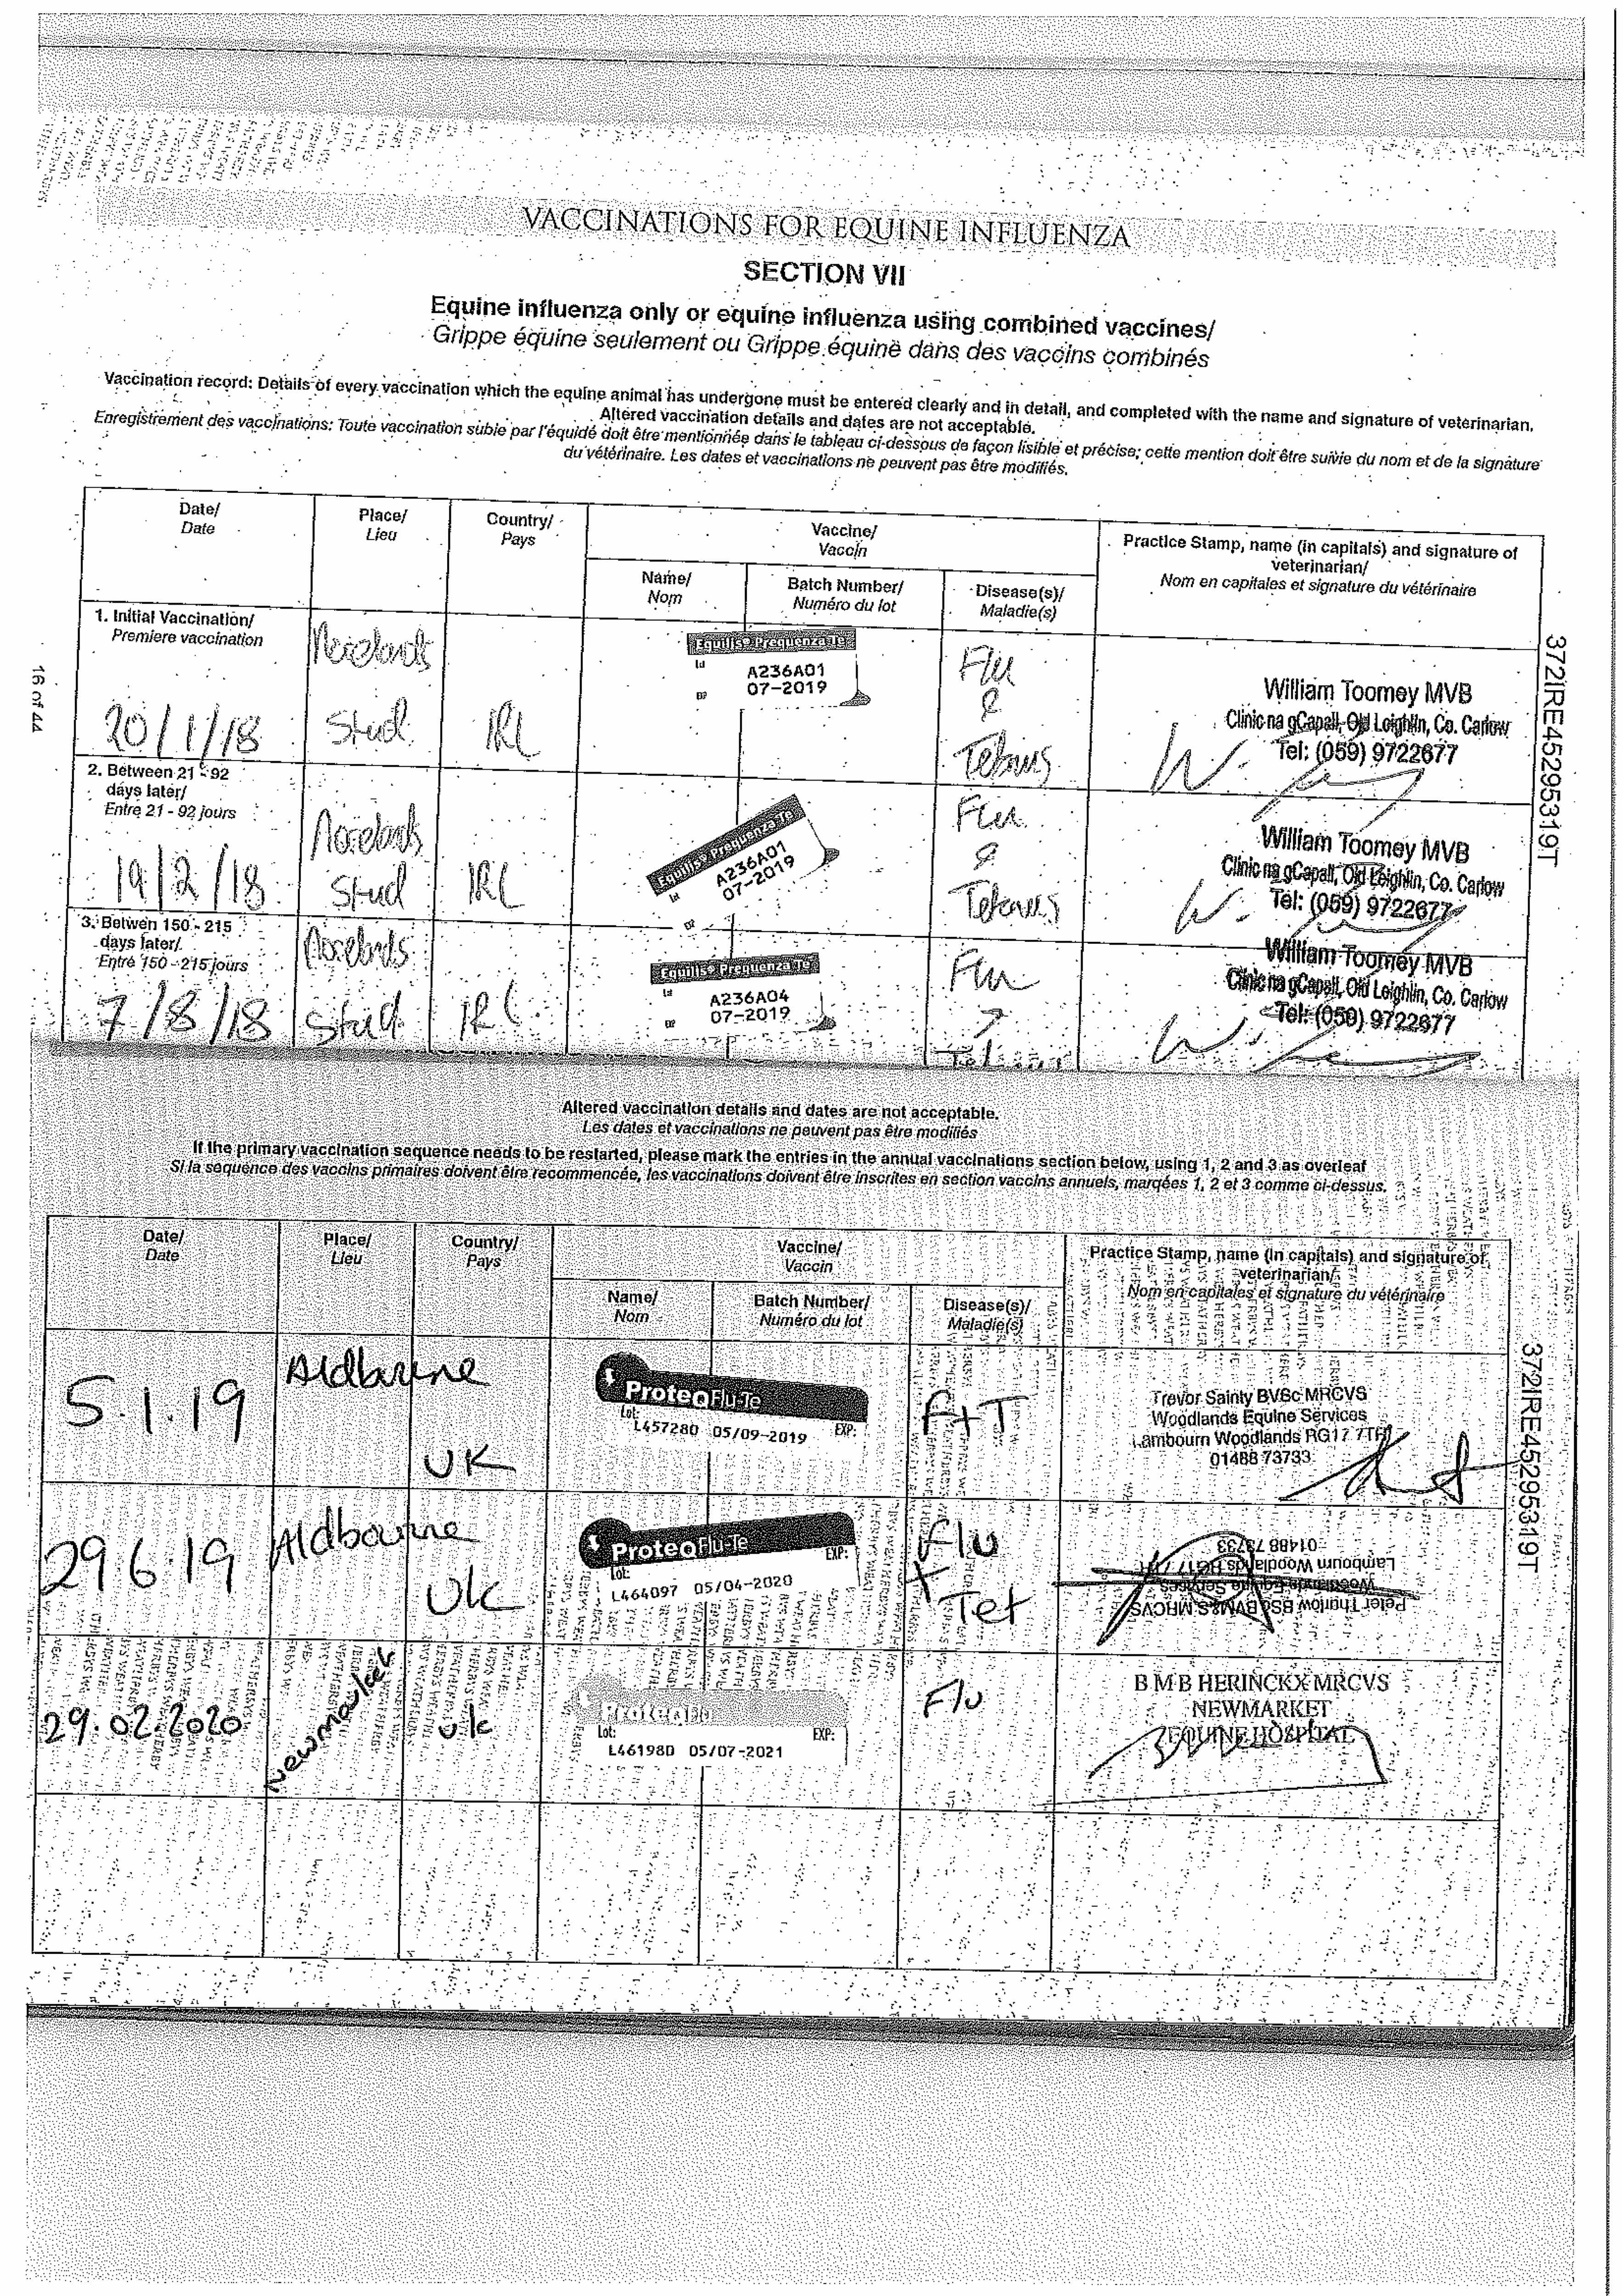 VACCINATIONS FOR EQUINE INFLUENZA
SECTION VII
Equine influenza only or equine influenza using combined vaccines/
Grippe équine seulement ou Grippe équine dans des vaccins combinés
Vaccination record: Details of every vaccination which the equine animal has undergone must be entered clearly and in detail, and completed with the name and signature of veterinarian.
Altered vaccination details and dates are not acceptable.
Enregistrement des vaccinations: Toute vaccination subie par l'équidé doit être mentionnée dans le tableau ci-dessous de façon lisible et précise; cette mention doit être suivie du nom et de la signature
du vétérinaire. Les dates et vaccinations ne peuvent pas être modifiés.
Date/
Date
Place/
Lieu
Country/
Pays
Vaccine/
Vaccin
Practice Stamp, name (in capitals) and signature of
veterinarian/
Nom en capitales et signature du vétérinaire
Name/
Nom
Batch Number/
Numéro du lot
Disease(s)/
Maladie(s)
1. Initial Vaccination/
Premiere vaccination
20/1/18
Stud
IRL
Equilis Prequenza Te
A236A01
07-2019
Flu
&
Tetanus
William Toomey MVB
Clinic na gCapall, Old Leighlin, Co. Carlow
Tel: (059) 9722677
2. Between 21 - 92
days later/
Entre 21 - 92 jours
19/2/18
Stud
IRL
Equilis Prequenza Te
A236A01
07-2019
Flu
&
Tetanus
William Toomey MVB
Clinic na gCapall, Old Leighlin, Co. Carlow
Tel: (059) 9722677
3. Betwen 150 - 215
days later/
Entre 150 - 215 jours
7/8/18
Stud
IRL
Equilis Prequenza Te
A236A04
07-2019
Flu
William Toomey MVB
Clinic na gCapall, Old Leighlin, Co. Carlow
Tel: (059) 9722677
16 of 44
372IRE45295319T
Altered vaccination details and dates are not acceptable.
Les dates et vaccinations ne peuvent pas être modifiés
If the primary vaccination sequence needs to be restarted, please mark the entries in the annual vaccinations section below, using 1, 2 and 3 as overleaf
Si la sequence des vaccins primaires doivent être recommencée, les vaccinations doivent être inscrites en section vaccins annuels, marqées 1, 2 et 3 comme ci-dessus.
Date/
Date
Place/
Lieu
Country/
Pays
Vaccine/
Vaccin
Practice Stamp, name (in capitals) and signature of
veterinarian/
Nom en capitales et signature du vétérinaire
Name/
Nom
Batch Number/
Numéro du lot
Disease(s)/
Maladie(s)
5.1.19
Aldbourne
UK
ProteqFlu-Te
Lot: EXP:
L457280 05/09-2019
F+T
Trevor Sainty BVSc MRCVS
Woodlands Equine Services
Lambourn Woodlands RG17 7TR
01488 73733
29.6.19
Aldbourne
UK
ProteqFlu-Te
Lot: EXP:
L464097 05/04-2020
Flu
+
Tet
Peter Thurlow BSc BVM&S MRCVS
Woodlands Equine Services
Lambourn Woodlands RG17 7TR
01488 73733
29.02.2020
Newmarket
UK
ProteqFlu
Lot: EXP:
L46198D 05/07-2021
Flu
B M B HERINCKX MRCVS
NEWMARKET
EQUINE HOSPITAL
372IRE45295319T